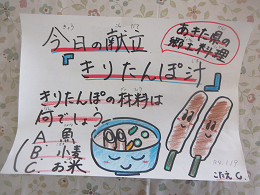 今日の献立
きょう こんだて
あきた県の
郷土料理
『きりたんぽ汁』
きりたんぽの材料は
何でしょう
A. 魚
B. 小麦
C. お米
こたえ C.